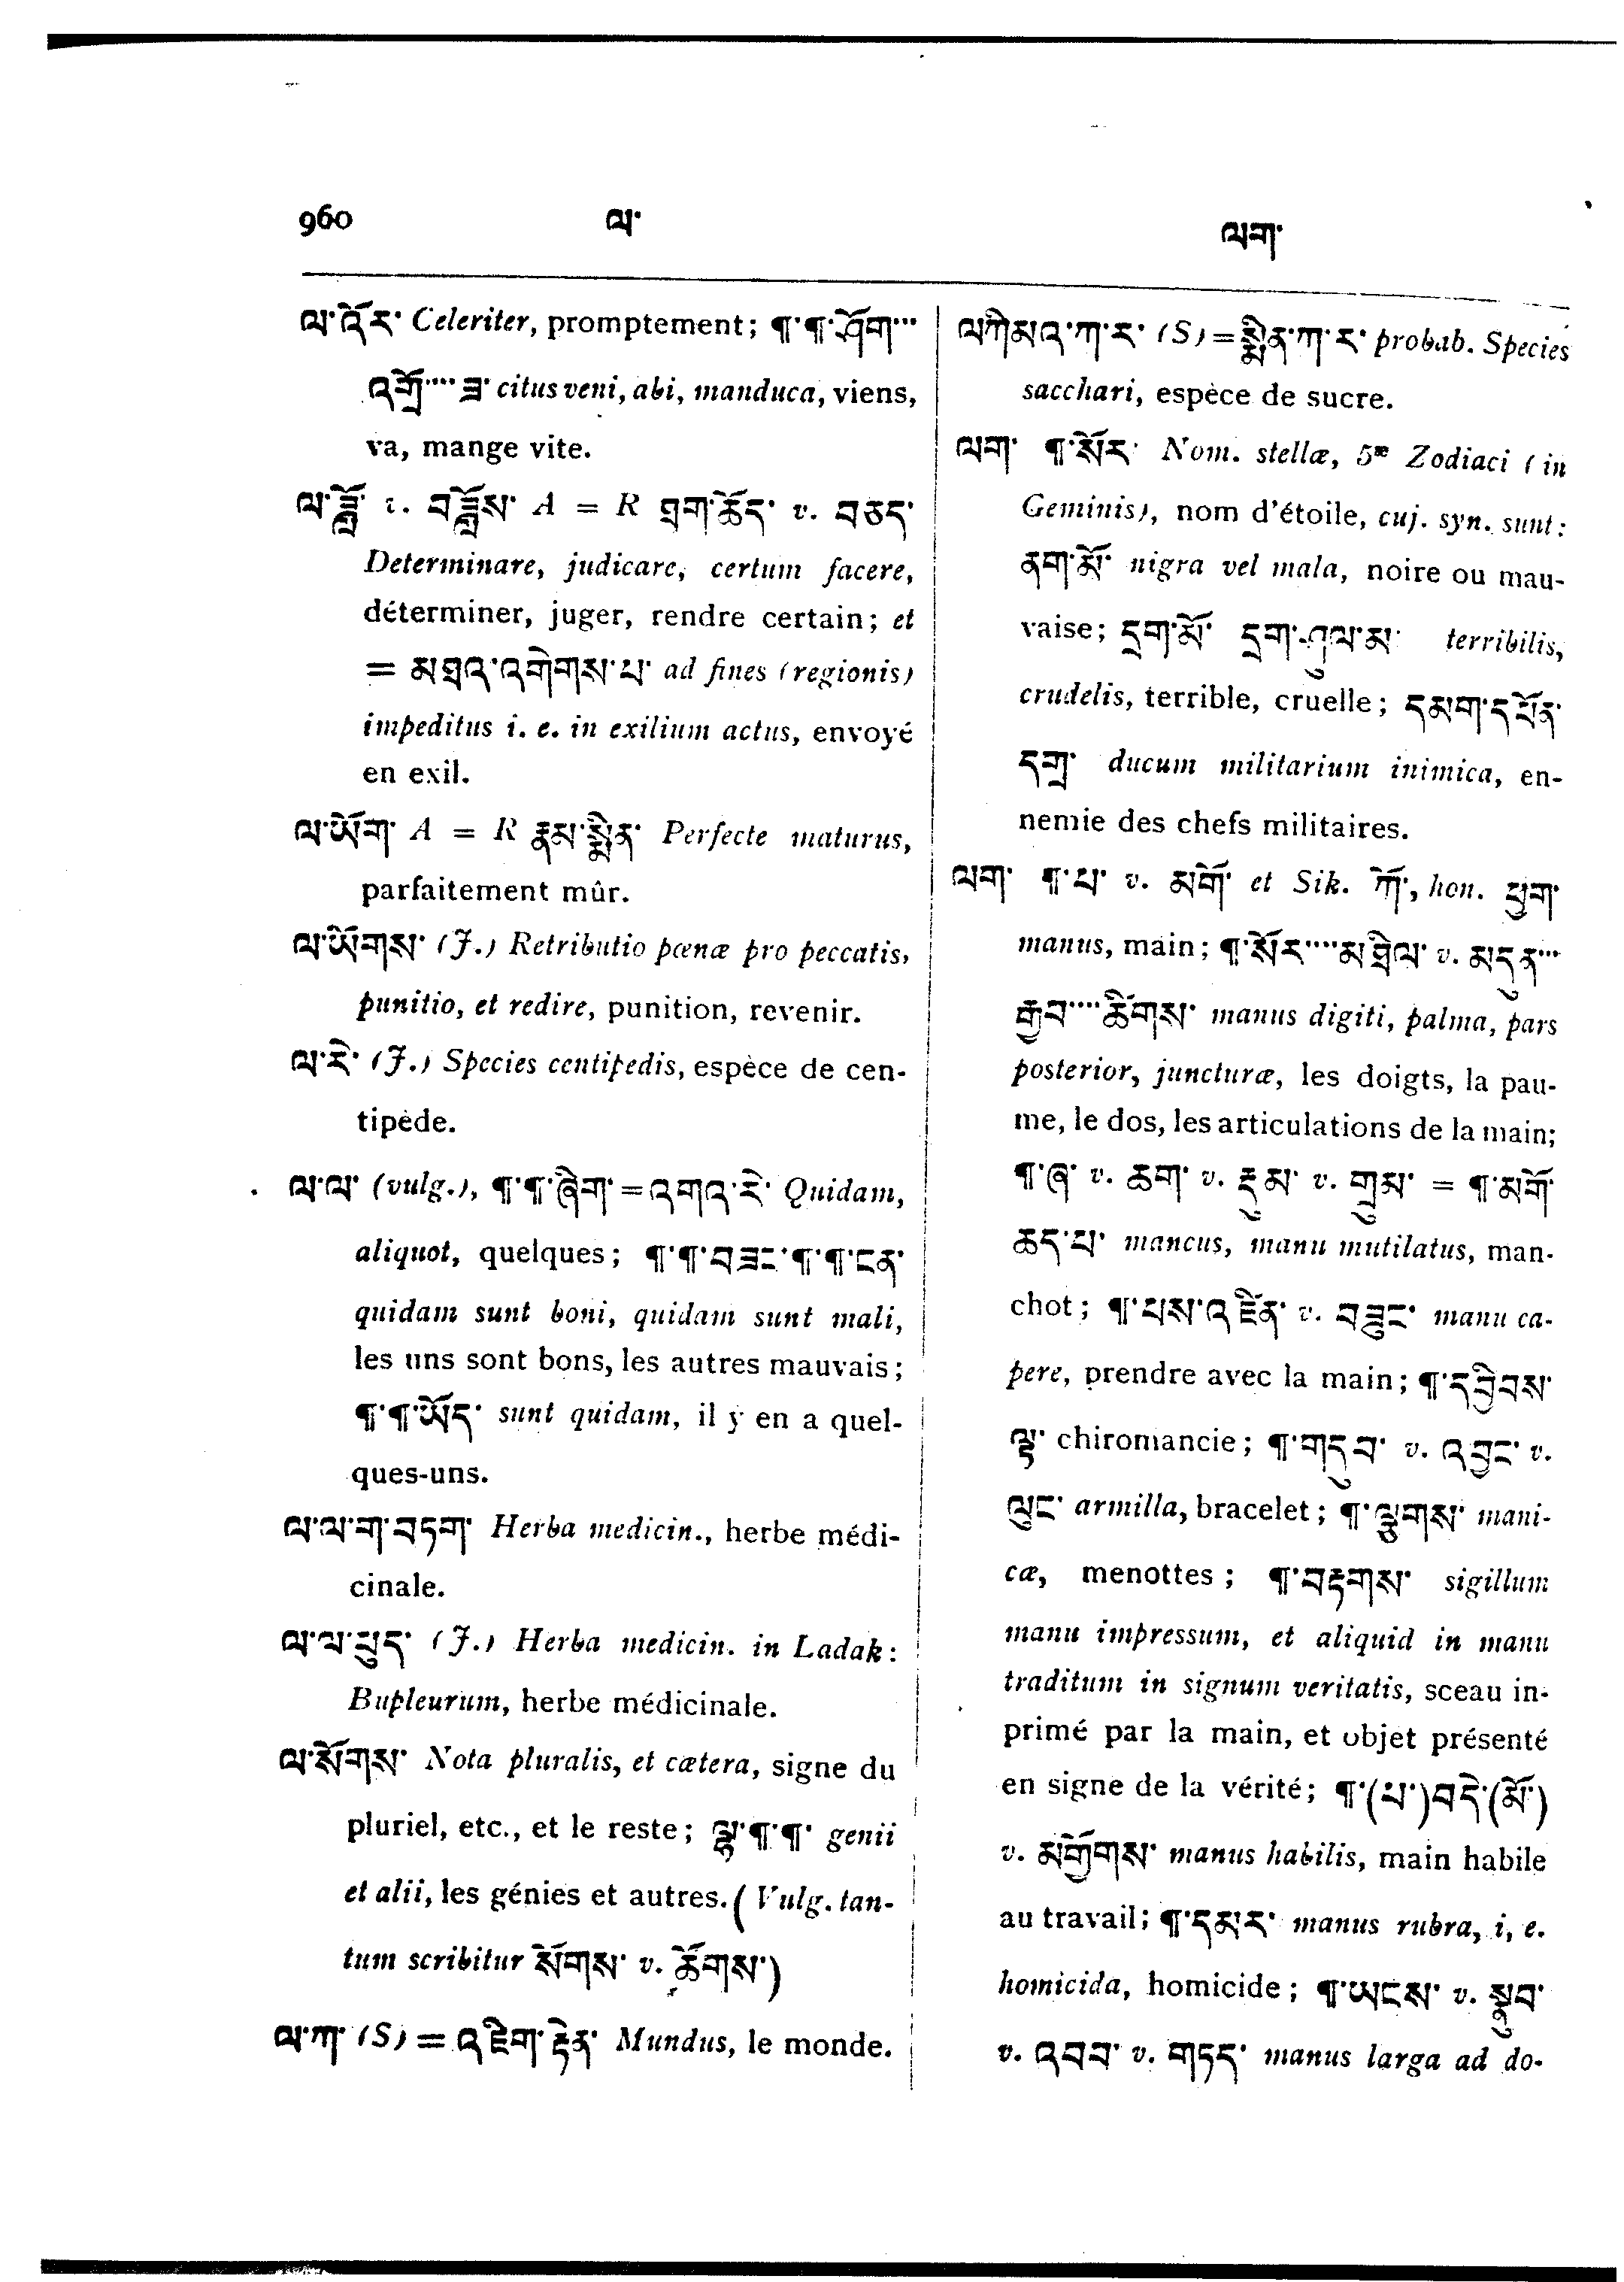 960 ལ་ ལག་
ལ་འོར་ Celeriter, promptement; ¶་¶་ཤོག་…
འགྲོ་…ཟ་ citus veni, abi, manduca, viens,
va, mange vite.
ལ་ཟློ་ v. བཟློས་ A = R ཐག་ཆོད་ v. བཅད་
Determinare, judicare, certum facere,
déterminer, juger, rendre certain; et
= མཐའ་འགེགས་པ་ ad fines (regionis)
impeditus i. e. in exilium actus, envoyé
en exil.
ལ་ཡོག་ A = R རྣམ་སྨིན་ Perfecte maturus,
parfaitement mûr.
ལ་ཡོགས་ (J.) Retributio pœnæ pro peccatis,
punitio, et redire, punition, revenir.
ལ་རེ་ (J.) Species centipedis, espèce de cen-
tipède.
ལ་ལ་ (vulg.), ¶་¶་ཞིག་ = འགའ་རེ་ Quidam,
aliquot, quelques; ¶་¶་བཟང་¶་¶་ངན་
quidam sunt boni, quidam sunt mali,
les uns sont bons, les autres mauvais;
¶་¶་ཡོད་ sunt quidam, il y en a quel-
ques-uns.
ལ་ལ་ག་བཏག་ Herba medicin., herbe médi-
cinale.
ལ་ལ་ཕུད་ (J.) Herba medicin. in Ladak:
Bupleurum, herbe médicinale.
ལ་སོགས་ Nota pluralis, et cætera, signe du
pluriel, etc., et le reste; ལྷ་¶་¶་ genii
et alii, les génies et autres. (Vulg. tan-
tum scribitur སོགས་ v. ཚོགས་)
ལ་ཀ་ (S) = འཇིག་རྟེན་ Mundus, le monde.
ལཀིམའ་ཀ་ར་ (S) = སྨིན་ཀ་ར་ probab. Species
sacchari, espèce de sucre.
ལག་ ¶་སོར་ Nom. stellæ, 5æ Zodiaci (in
Geminis), nom d'étoile, cuj. syn. sunt:
ནག་མོ་ nigra vel mala, noire ou mau-
vaise; དྲག་མོ་ དྲག་ཤུལ་མ་ terribilis,
crudelis, terrible, cruelle; དམག་དཔོན་
དགྲ་ ducum militarium inimica, en-
nemie des chefs militaires.
ལག་ ¶་པ་ v. མགོ་ et Sik. ཀོ་, hon. ཕྱག་
manus, main; ¶་སོར་…མཐིལ་ v. མདུན་…
རྒྱབ་…ཚིགས་ manus digiti, palma, pars
posterior, juncturæ, les doigts, la pau-
me, le dos, les articulations de la main;
¶་ཞ་ v. ཆག་ v. རྡུམ་ v. གྲུམ་ = ¶་མགོ་
ཆད་པ་ mancus, manu mutilatus, man-
chot; ¶་པས་འཛིན་ v. བཟུང་ manu ca-
pere, prendre avec la main; ¶་དབྱིབས་
ལྟ་ chiromancie; ¶་གདུབ་ v. འབྱང་ v.
ལུང་ armilla, bracelet; ¶་ལྕགས་ mani-
cæ, menottes; ¶་བརྟགས་ sigillum
manu impressum, et aliquid in manu
traditum in signum veritatis, sceau in-
primé par la main, et objet présenté
en signe de la vérité; ¶་(པ་)བདེ་(མོ་)
v. མགྱོགས་ manus habilis, main habile
au travail; ¶་དམར་ manus rubra, i, e.
homicida, homicide; ¶་ཡངས་ v. སྣུབ་
v. འབབ་ v. གཏད་ manus larga ad do-